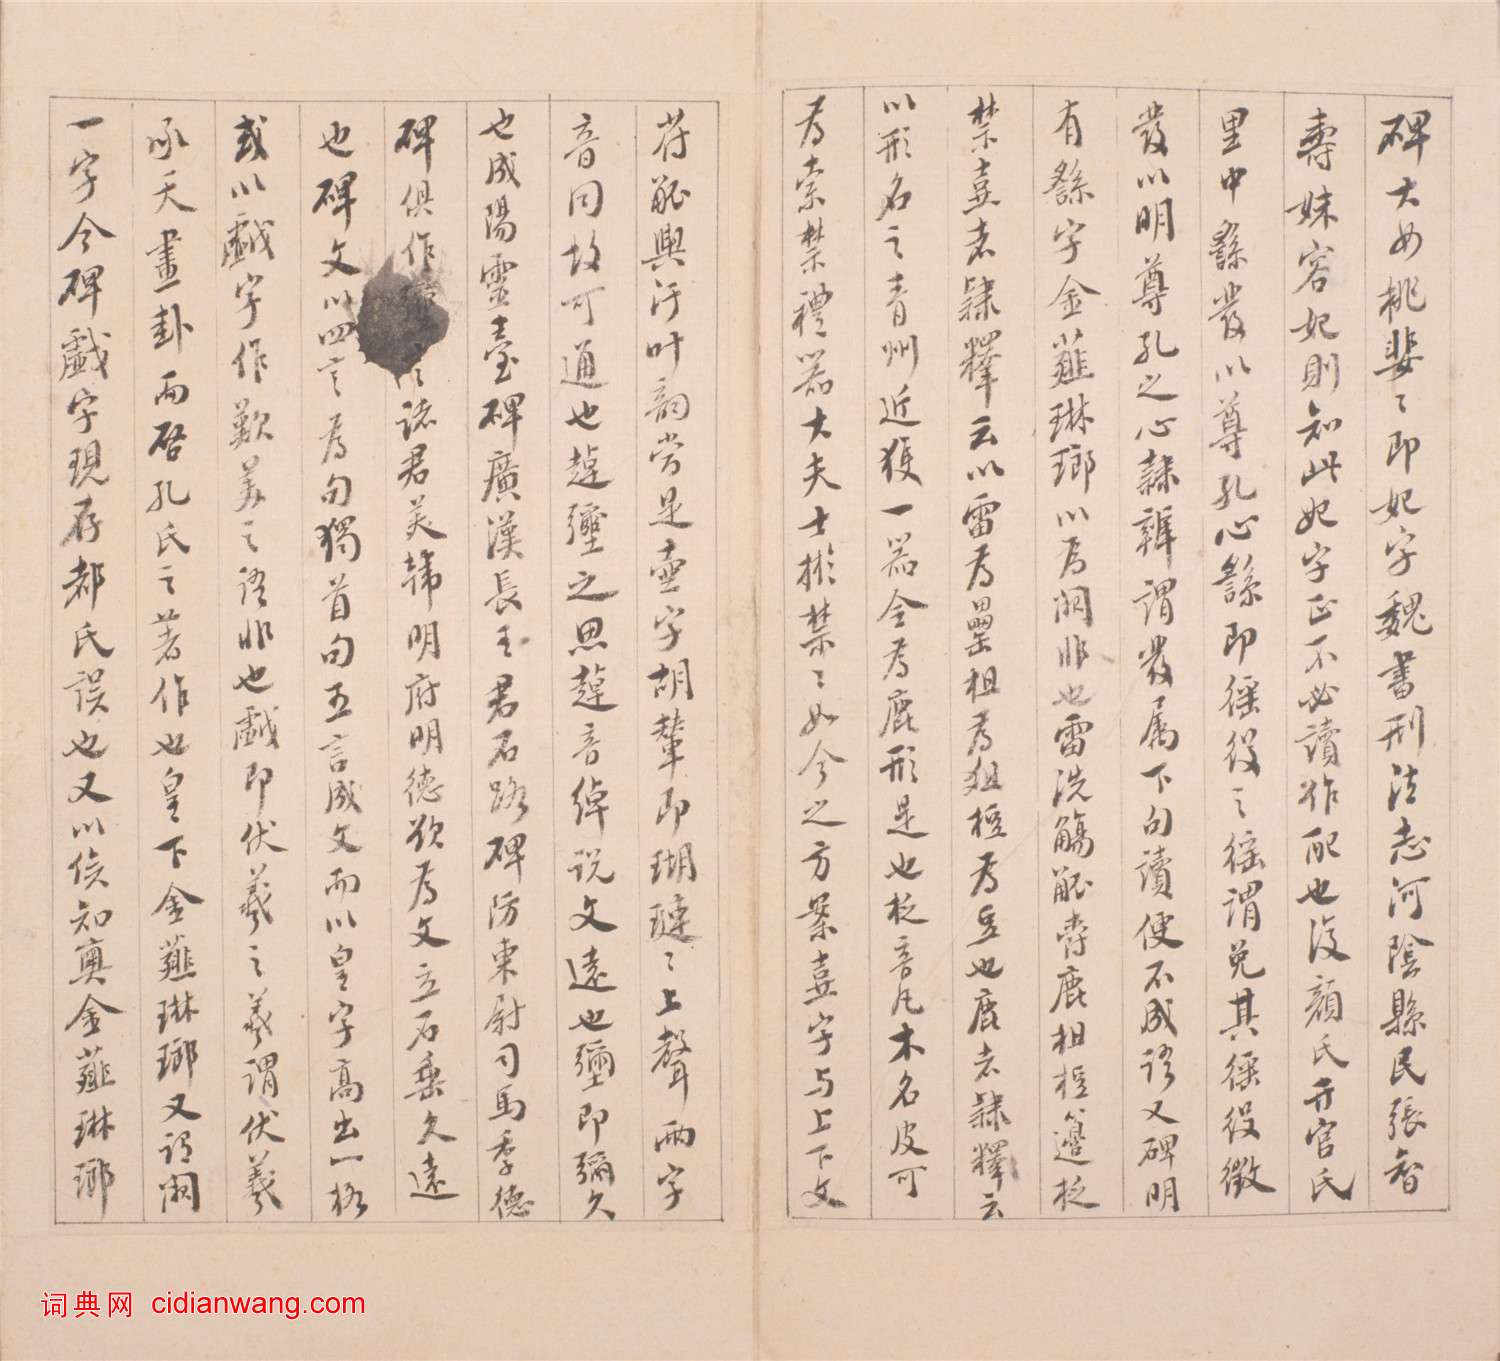 碑大女桃婓〻即妃字魏書刑法志河陰縣民張智
壽妹容妃則知此妃字正不必讀作配也復顏氏亓官氏
里中繇發以尊孔心繇即徭役之徭謂免其徭役徵
發以明尊孔之心隸辨謂發屬下句讀便不成語又碑明
有繇字金薤琳瑯以為闕非也雷洗觴觚爵鹿柤梪籩柉
禁壴者隸釋云以雷為罍柤為俎梪為豆也鹿者隸釋云
以形名之青州近獲一器全為鹿形是也柉音凡木名皮可
為索禁禮器大夫士棜禁〻如今之方案壴字与上下文
符觚輿汙叶韵當是壷字胡輦即瑚璉〻上聲兩字
音同故可通也趠彊之思趠音綽說文遠也彊即彌久
也成陽靈臺碑廣漢長王君石路碑防東尉司馬季德
碑俱作諸君美韓明府明德歌為文立石垂久遠
也碑文以四言為句獨首句五言成文而以皇字高出一格
或以戲字作歎美之語非也戲即伏羲之羲謂伏羲
承天畫卦而啓孔氏之著作也皇下金薤琳瑯又謂闕
一字今碑戲字現存都氏誤也又以俟知奧金薤琳瑯
词典网 cidianwang.com